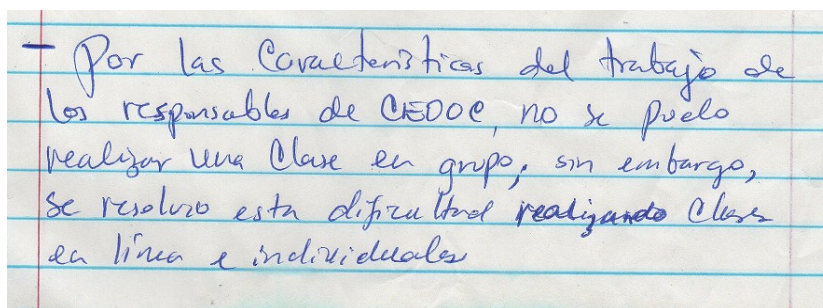 - Por las Características del trabajo de
los responsables de CEDOC, no se puelo
realizar una Clase en grupo; sin embargo,
se resolvio esta dificultad realizando Clases
en línea e individuales